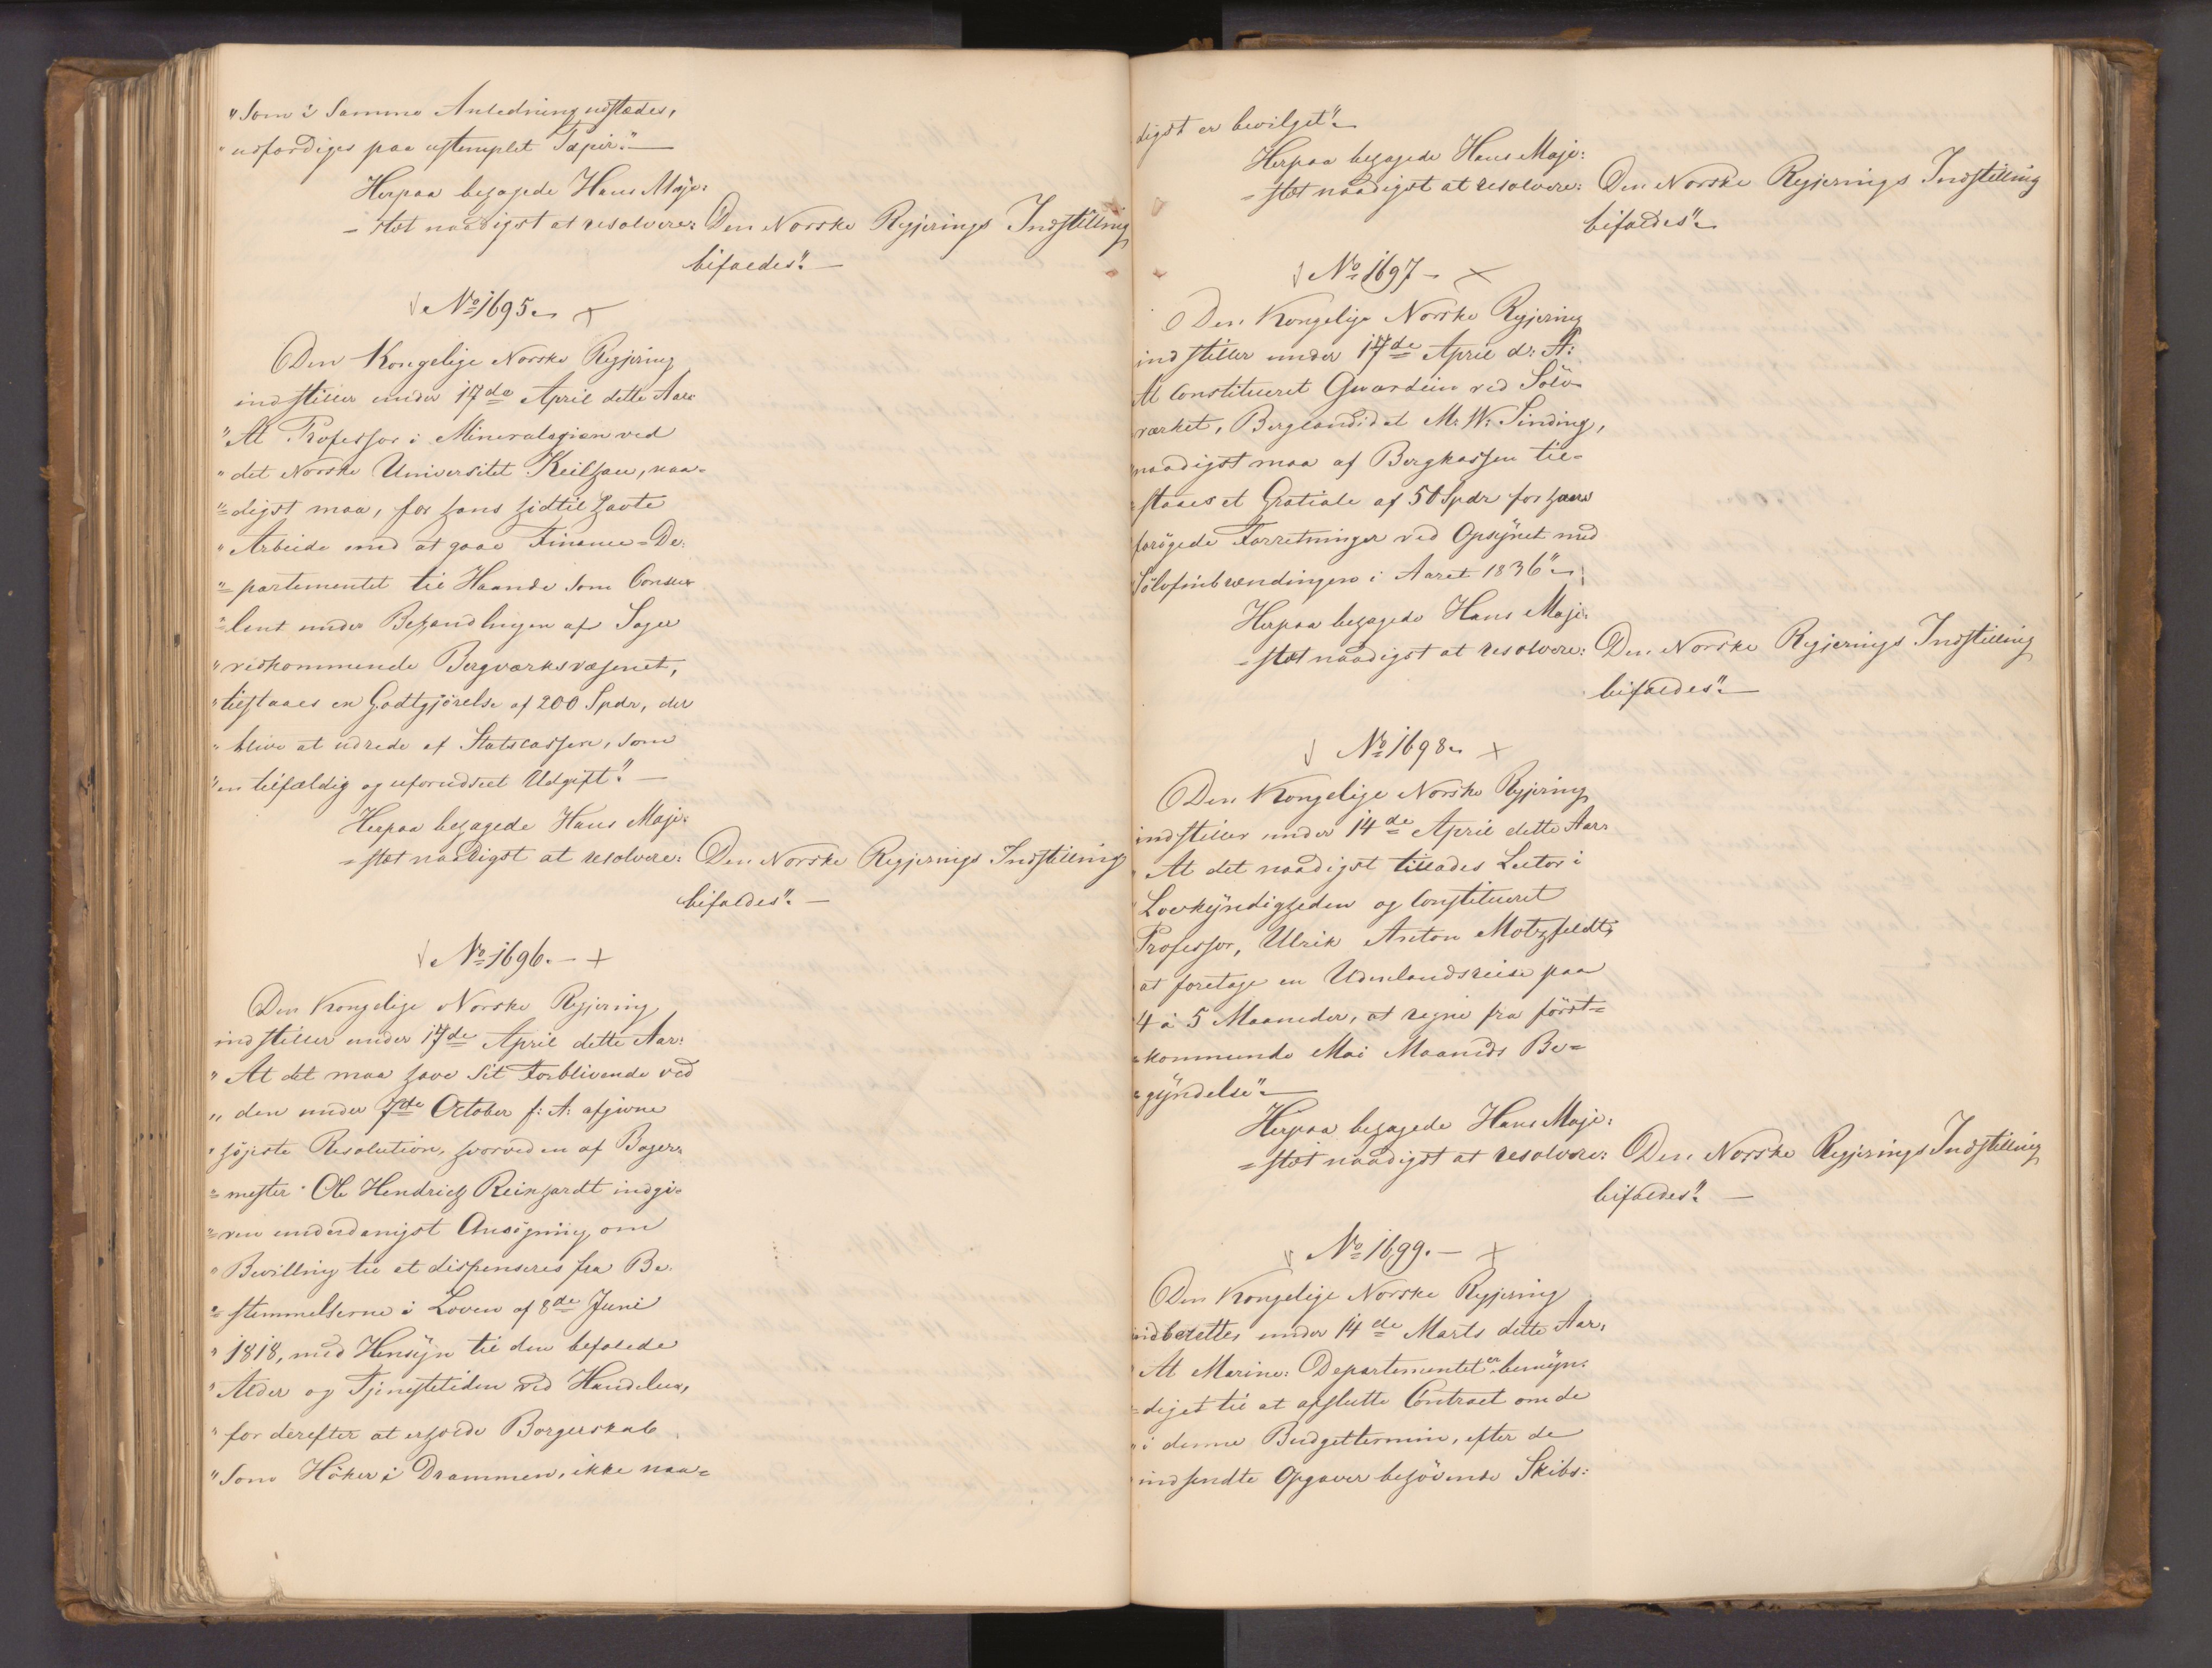 "Som i Samme Anledning udstædes,
"udfærdiges paa ustemplet Papir." —
Herpaa behagede Hans Maje:
= stæt naadigst at resolvere: Den Norske Regjerings Indstilling
bifaldes". —
No 1695. +
Den Kongelige Norske Regjering
indstiller under 17de April dette Aar:
"At Professor i Mineralogien ved
"det Norske Universitet Keilhau, naa=
"=digst maa, for hans hidtil havte
"Arbeide med at gaae Finance=De=
"=partementet til Haande som Consu=
"=lent under Behandlingen af Sager
"vedkommende Bergværksvæsenet,
"tilstaaes en Godtgjörelse af 200 Spdr, der
"blive at udrede af Statscassen, som
"en tilfældig og uforudseet Udgift". —
Herpaa behagede Hans Maje=
=stæt naadigst at resolvere: Den Norske Regjerings Indstilling
bifaldes". —
No 1696. — +
Den Kongelige Norske Regjering
indstiller under 17de April dette Aar:
"At det maa have sit Forblivende ved
"den under 7de October f: A: afgivne
"höjeste Resolution, hvorved en af Bager=
"=mester Ole Hendrich Reinhardt indgi=
"=ven underdanigst Ansögning om
"Bevilling til at dispenseres fra Be=
"=stemmelserne i Loven af 8de Juni
"1818, med Hensyn til den befalede
"Alder og Tjenestetiden ved Handelen,
"for derefter at erholde Borgerskab
"Som Höker i Drammen, ikke naa=
digst er bevilget".
Herpaa behagede Hans Maje:
=stæt naadigst at resolvere: Den Norske Regjerings Indstilling
bifaldes".
No 1697 — +
Den Kongelige Norske Regjering
indstiller under 17de April d: A:
At Constitueret Guardein ved Sölv=
værket, Bergcandidat M. W. Sinding,
naadigst maa af Bergkassen til=
=staaes et Gratiale af 50 Spdr for hans
forögede Forretninger ved Opsynet med
Sölvfinbrændingen i Aaret 1836".
Herpaa behagede Hans Maje=
=stæt naadigst at resolvere: Den Norske Regjerings Indstilling
bifaldes". —
No 1698. +
Den Kongelige Norske Regjering
indstiller under 14de April dette Aar:
"At det naadigst tillades Lector i
"Lovkyndigheden og Constitueret
Professor, Ulrik Anton Motzfeldt,
at foretage en Udenlandsreise paa
4 à 5 Maaneder, at regne fra först=
=kommende Mai Maaneds Be=
=gyndelse". —
Herpaa behagede Hans Maje:
=stæt naadigst at resolvere: Den Norske Regjerings Indstilling
bifaldes". —
No 1699. — +
Den Kongelige Norske Regjering
indberetter under 14de Marts dette Aar,
"At Marine: Departementet er bemyn=
=diget til at afslutte Contract om de
"i denne Budgettermin, efter de
indsendte Opgaver behövende Skibs: